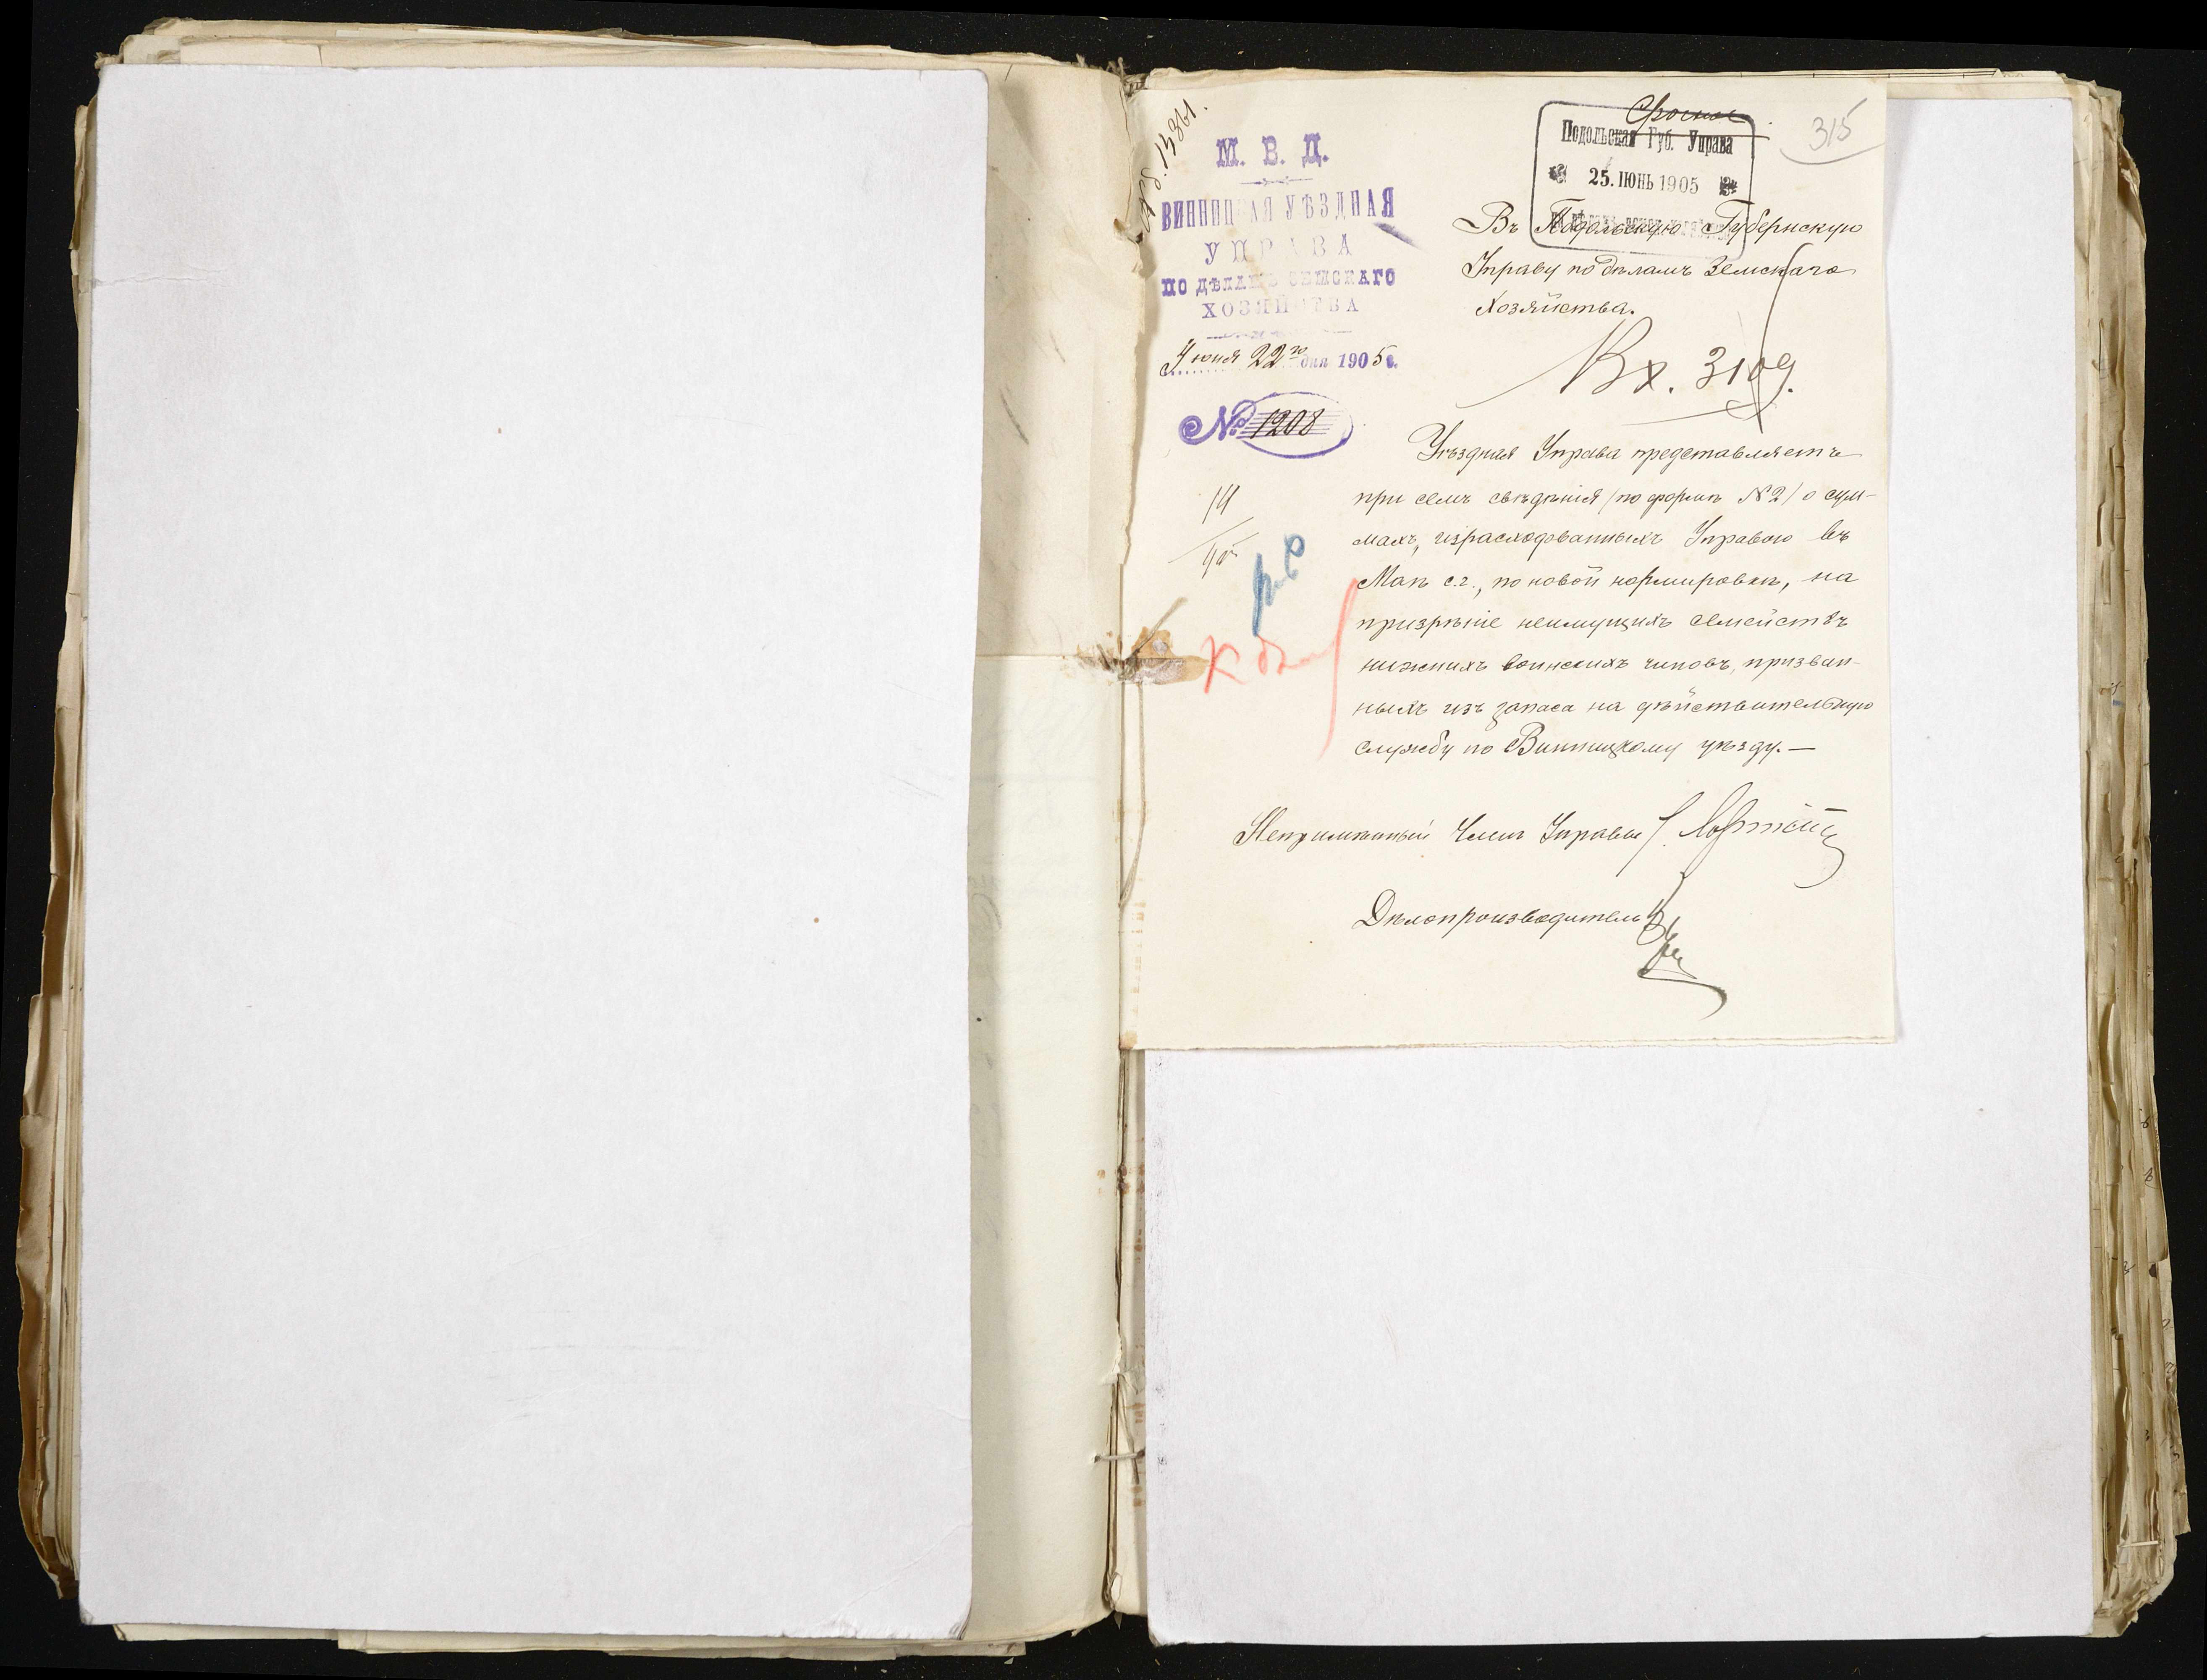 Срочно
315
М. В. Д.
ВИННИЦКАЯ УѢЗДНАЯ
УПРАВА
ПО ДѢЛАМЪ ЗЕМСКАГО
ХОЗЯЙСТВА
Июня 22го дня 1905 г.
№ 1208
Подольская Губ. Управа
25. ІЮНЬ 1905
Въ Подольскую Губернскую
Управу по дѣламъ Земскаго
Хозяйства.
Вх. 3109.
Уѣздная Управа представляетъ
при семъ свѣдѣнія (по формѣ № 2) о сум-
махъ, израсходованныхъ Управою въ
Маѣ с.г., по новой нормировкѣ, на
призрѣніе неимущихъ семействъ
нижнихъ воинскихъ чиновъ, призван-
ныхъ изъ запаса на дѣйствительную
службу по Винницкому уѣзду. —
К дѣлу
Непремѣнный Членъ Управы
Дѣлопроизводитель